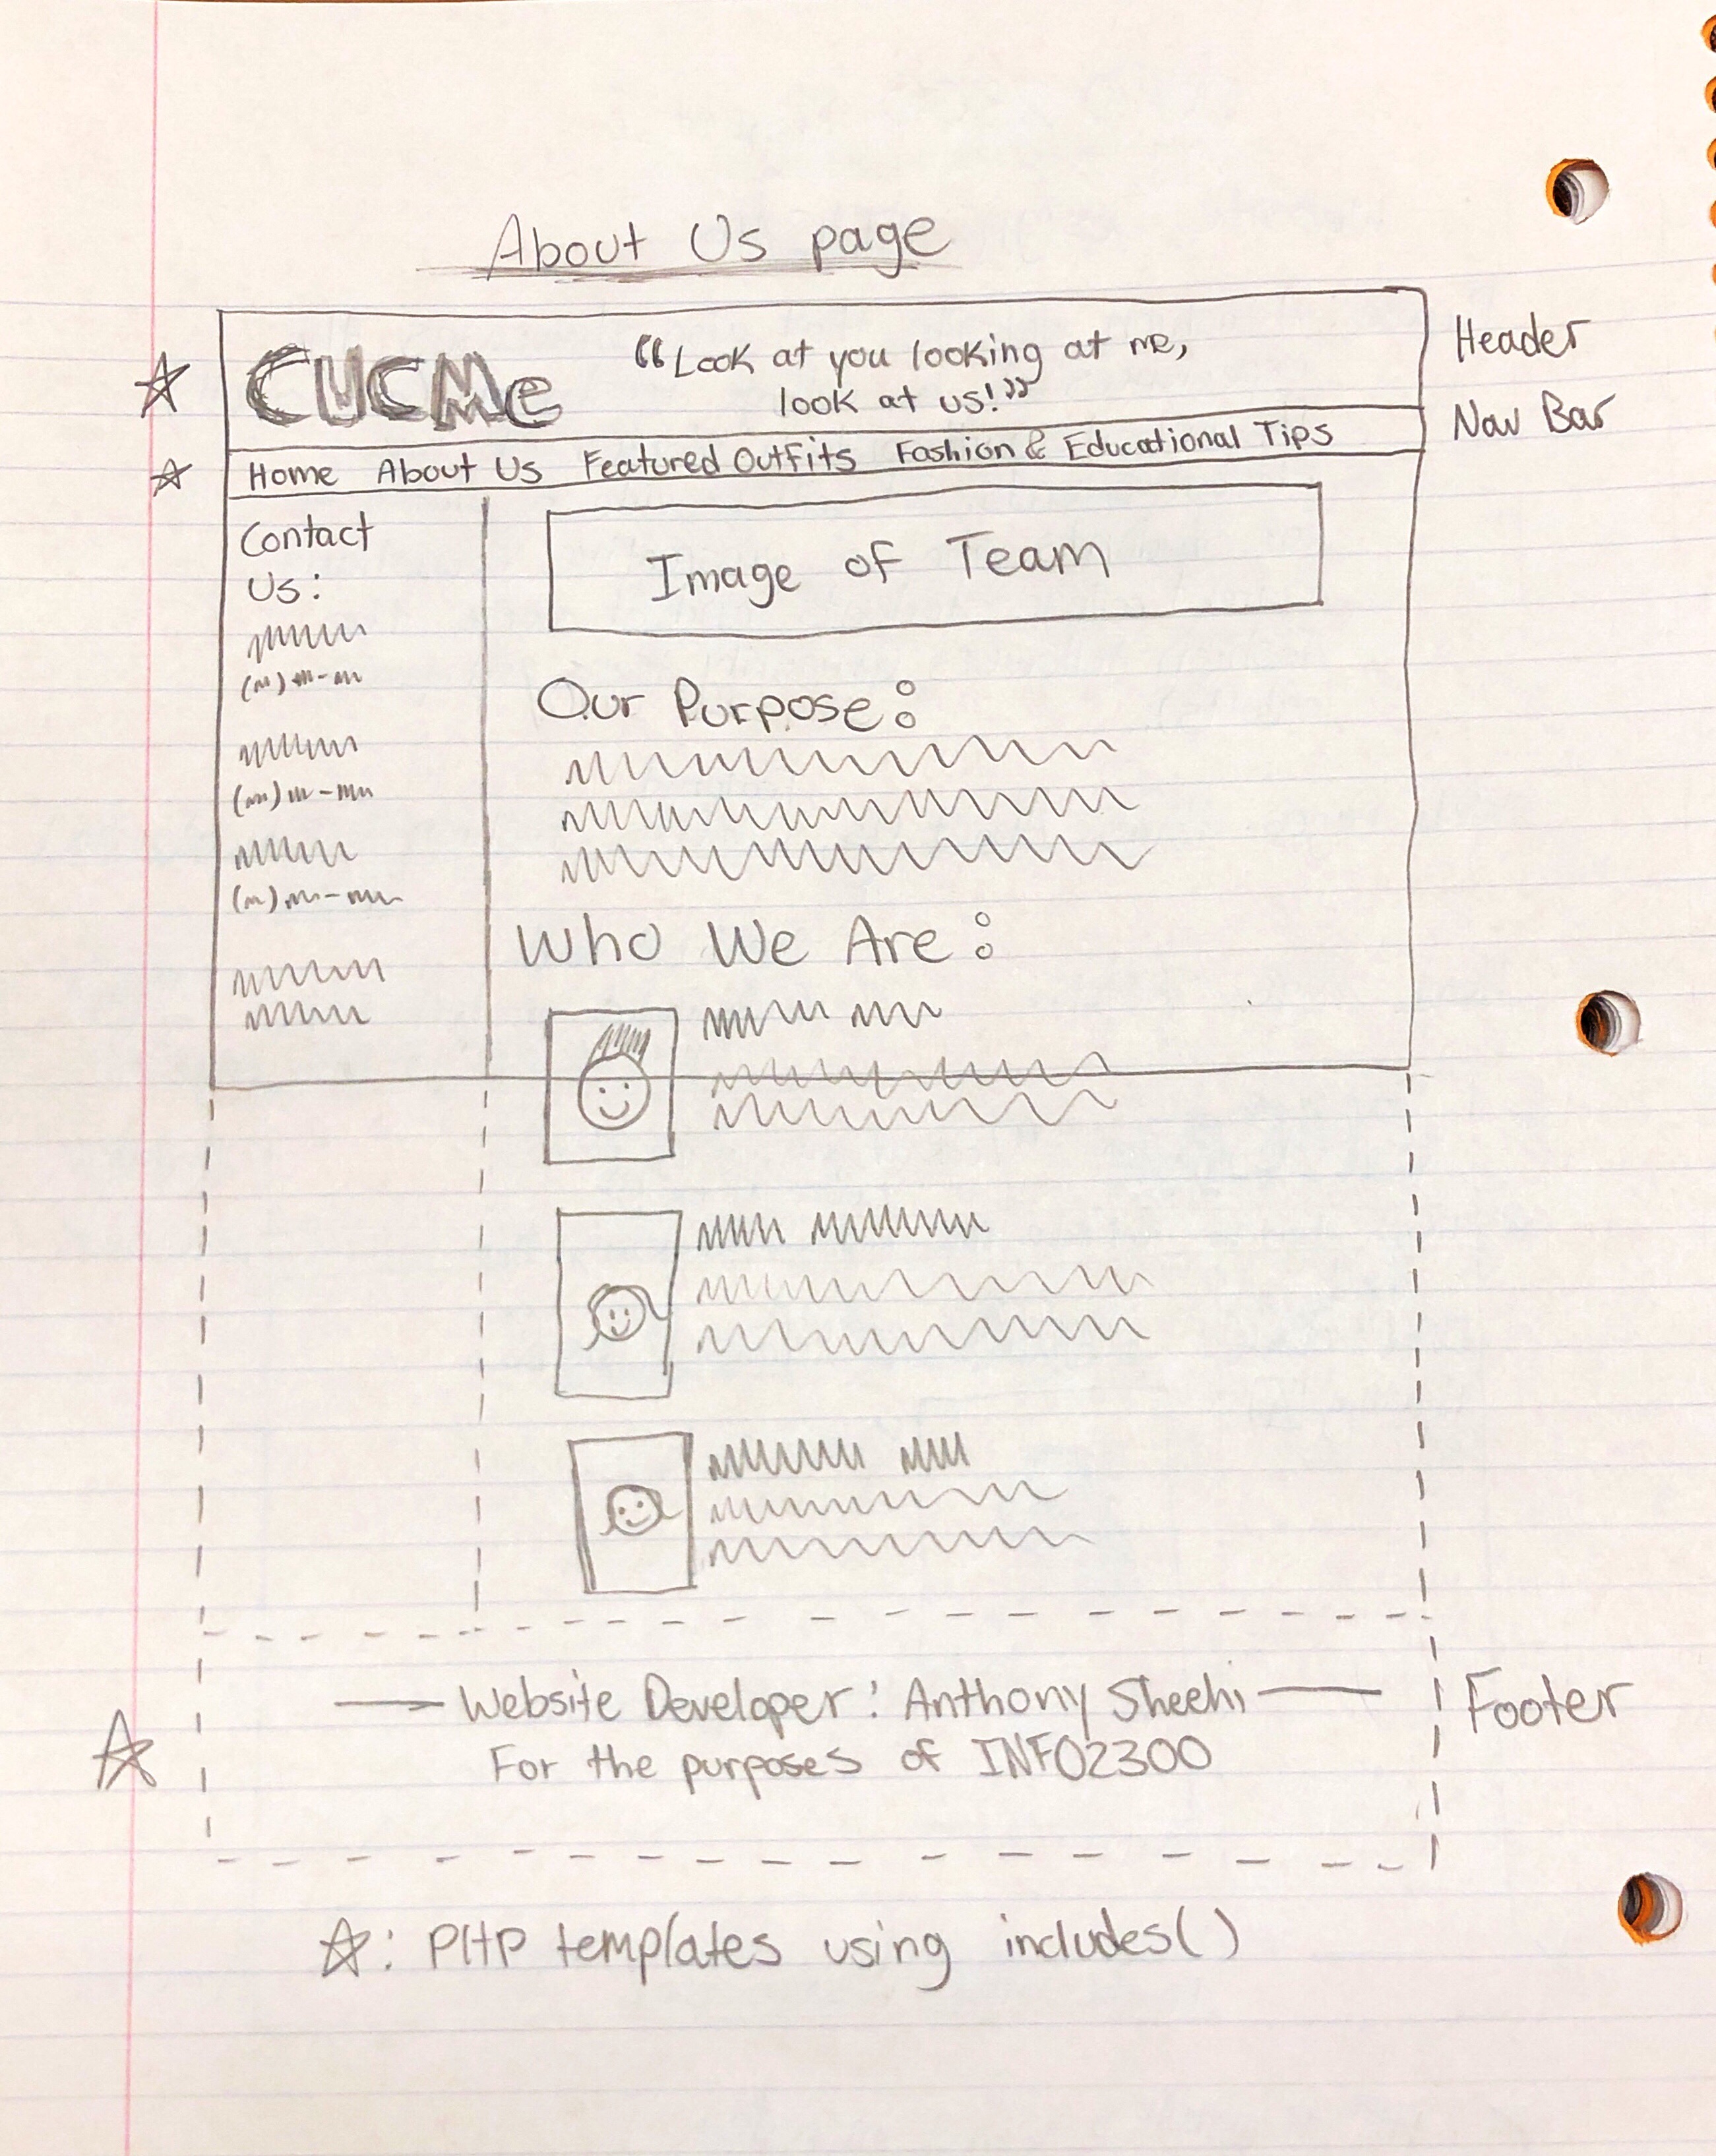 About Us page
CUCMe
“Look at you looking at me,
look at us!”
Header
Nav Bar
Home About Us Featured Outfits Fashion & Educational Tips
Contact
Us:
Image of Team
Our Purpose:
Who We Are:
Website Developer: Anthony Sheehi
For the purposes of INFO2300
Footer
☆: PHP templates using includes()